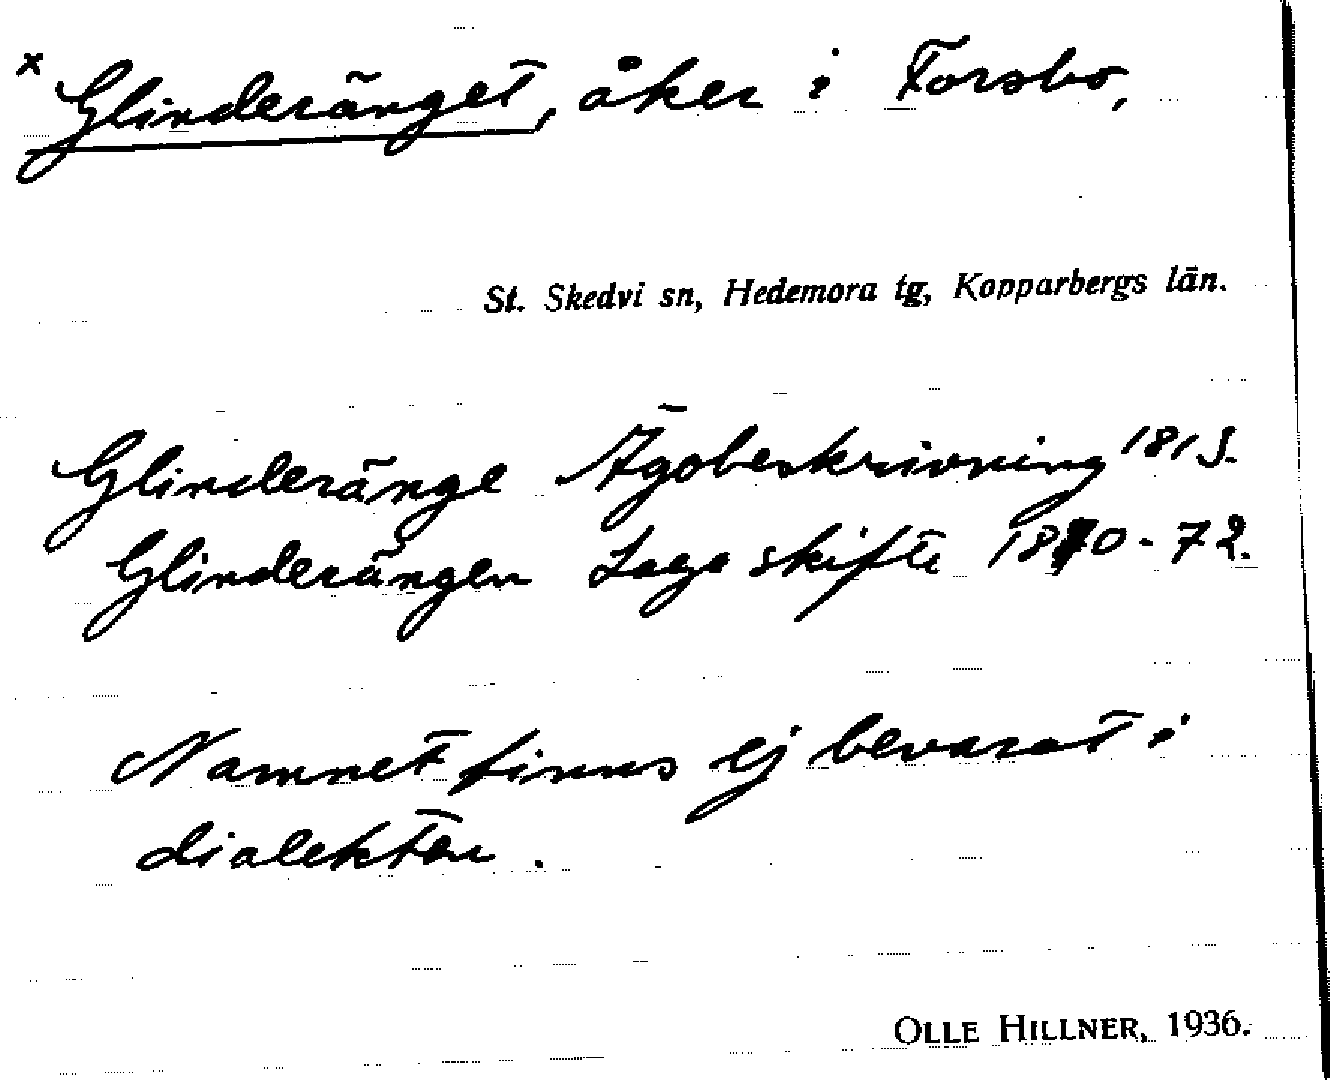 x Glinderänget, åker i Forsbo,
St. Skedvi sn, Hedemora tg, Kopparbergs län.
Glinderänge Ägobeskrivning 1815.
Glinderängen Laga skifte 1870-72.
Namnet finns ej bevarat i
dialekten.
OLLE HILLNER, 1936.